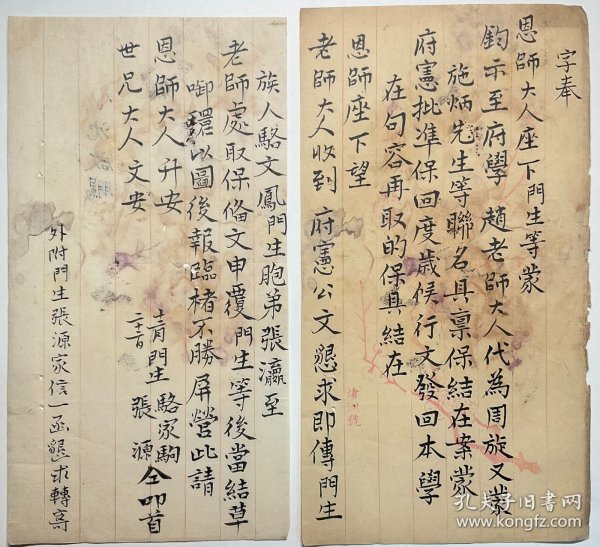 字奉
恩師大人座下門生等蒙
鈞示至府學 趙老師大人代為周旋又蒙
施炳先生等聯名具禀保結在案蒙
府憲批准保回度歲候行文發回本學
在句容再取的保具結在
恩師座下望
老師大人收到 府憲公文懇求即傳門生
族人駱文鳳門生胞弟張瀛至
老師處取保俻文申覆門生等後當結草
啣環以圖後報臨楮不勝屏營此請
恩師大人升安
世兄大人文安
門生駱家駒
張源 仝叩首
外附門生張源家信一函懇求轉寄
孔夫子旧书网
www.kongfz.com